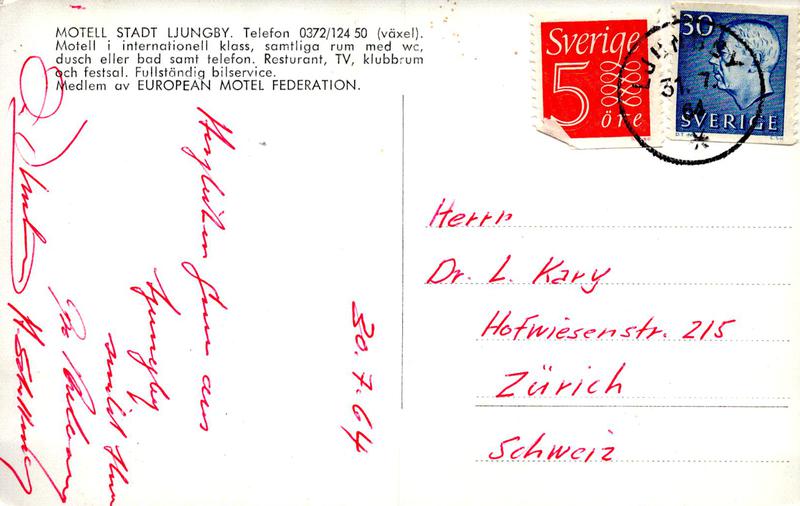 MOTELL STADT LJUNGBY. Telefon 0372/124 50 (växel).
Motell i internationell klass, samtliga rum med wc,
dusch eller bad samt telefon. Resturant, TV, klubbrum
och festsal. Fullständig bilservice.
Medlem av EUROPEAN MOTEL FEDERATION.
Sverige
5
öre
30
SVERIGE
LJUNGBY
31.7.
64
Herrn
Dr. L. Kary
Hofwiesenstr. 215
Zürich
Schweiz
30.7.64
Herzlichen Gruss aus
Ljungby